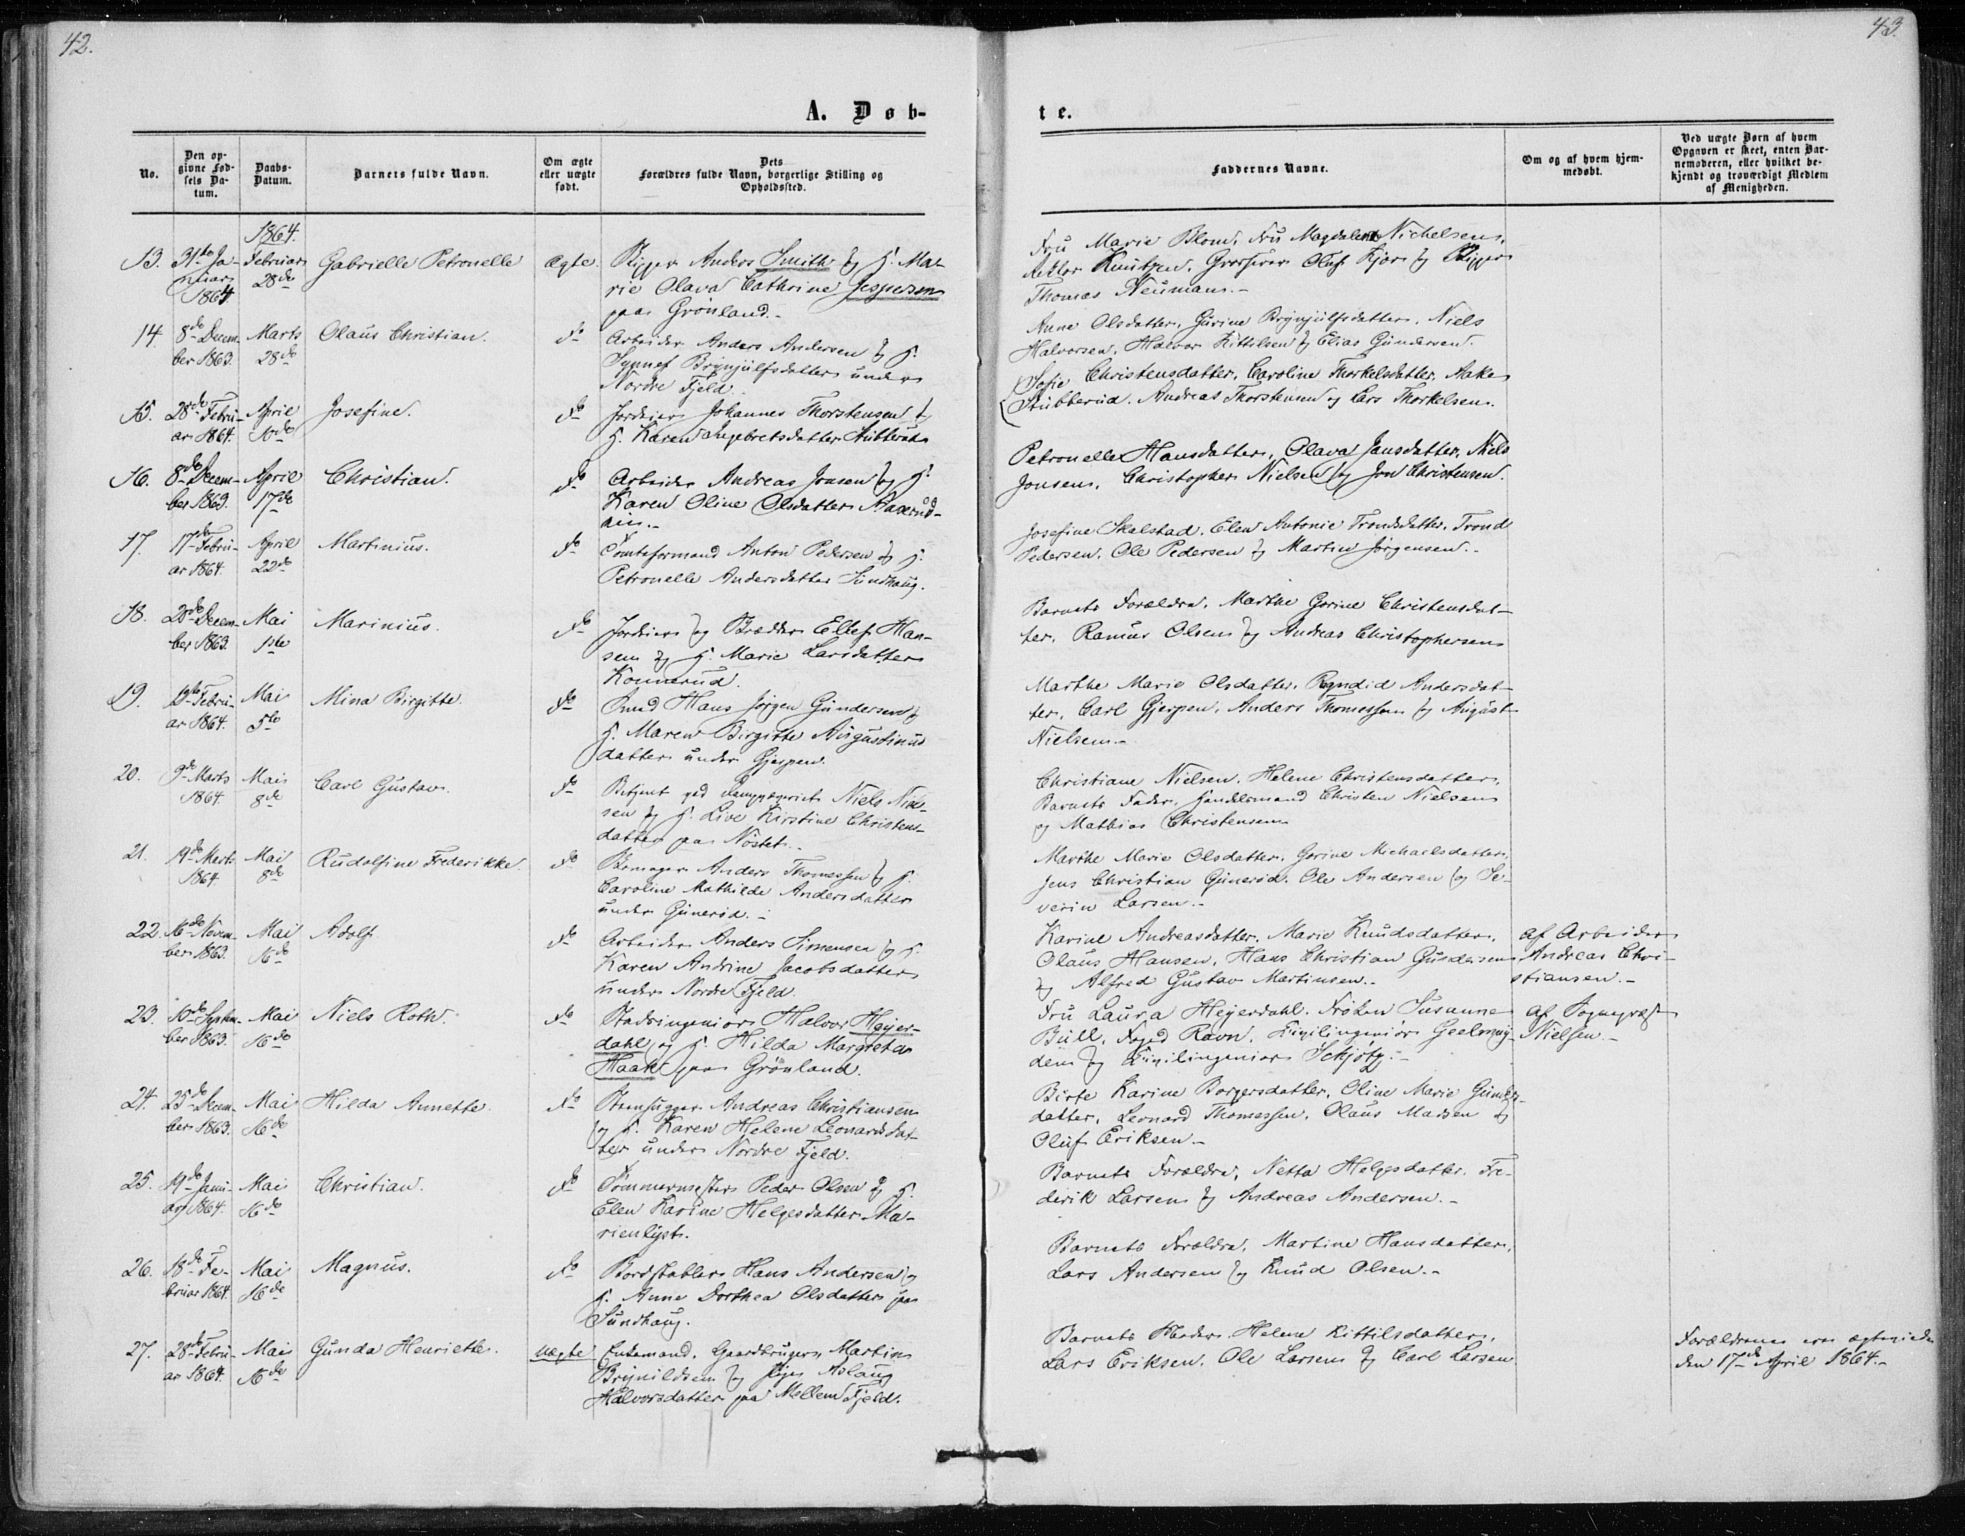 42.
43.
A. Døb-
te.
No.
Den op-
givne Fød-
sels Da-
tum.
Daabs-
Datum.
Barnets fulde Navn.
Om ægte
eller uægte
født.
Dets
Forældres fulde Navn, borgerlige Stilling og
Opholdssted.
Faddernes Navne.
Om og af hvem hjem-
medøbt.
Ved uægte Børn af hvem
Opgaven er skeet, enten Bar-
nemoderen, eller hvilket be-
kjendt og troværdigt Medlem
af Menigheden.
1864.
13. 31te Ja-
nuar
1864
Februar
28de
Gabrielle Petronelle
Ægte.
Skipper Anders Smith og H. Ma-
rie Olava Cathrine Jespersen
paa Grønland.
Fru Marie Blom, Fru Magdalena Nichelsen,
Rektor Knutzen, Grosserer Oluf Kjær og Skipper
Thomas Neumann.
14. 8de Decem-
ber 1863.
Marts
28de
Olaus Christian.
do
Arbeider Anders Andersen og H.
Synnef Brynjulfsdatter under
Nordre Fjeld.
Anne Olsdatter, Gurine Brynjulfsdatter, Niels
Halvorsen, Halvor Kittelsen og Elias Gundersen.
15. 28de Febru-
ar 1864.
April
10de
Josefine.
do
Jordeier Johannes Thorstensen og
H. Karen Ingebretsdatter Stubberud
Sofie Christensdatter, Caroline Thorkelsdatter, Aake
Stubberud, Andreas Thorstensen og Lars Thorkelsen.
16. 8de Decem-
ber 1863.
April
17de
Christian.
do
Arbeider Andreas Jonsen og H.
Karen Oline Olsdatter
Petronelle Hansdatter, Olava Jansdatter, Niels
Jonsen, Christopher Nielsen og Jon Christensen.
17. 17de Febru-
ar 1864.
April
22de
Martinius.
do
Tomteformand Anton Pedersen og H.
Petronelle Andersdatter Sundhaug.
Josefine Skalstad, Elen Antonie Trondsdatter, Trond
Pedersen, Ole Pedersen og Martin Jørgensen.
18. 28de Decem-
ber 1863.
Mai
1ste
Marinius.
do
Jordeier og Snedker Ellef Han-
sen og H. Marie Larsdatter
Konnerud.
Barnets Forældre, Marthe Gorine Christensdat-
ter, Rasmus Olsen og Andreas Christophersen
19. 13de Febru-
ar 1864.
Mai
5te
Mina Birgitte.
do
Smed Hans Jørgen Gundersen og
H. Maren Birgitte Augustinus
datter under Gjerpen.
Marthe Marie Olsdatter, Ragndid Andersdat-
ter, Carl Gjerpen, Anders Thomessen og August
Nielsen.
20. 9de Marts
1864.
Mai
8de
Carl Gustav.
do
Betjent ved Niels Niel-
sen og H. Live Kirstine Christens-
datter paa Nøstet.
Christiane Nielsen, Helene Christensdatter,
Barnets Fader, Handelsmand Christen Nielsen
og Mathias Christensen
21. 19de Marts
1864.
Mai
8de
Rudolfine Frederikke.
do
Anders Thomessen og H.
Caroline Mathilde Andersdatter
under Gunerød.
Marthe Marie Olsdatter, Gorine Michaelsdatter,
Jens Christian Gunerød, Ole Andersen og Se-
verin Larsen.
22. 16de Novem-
ber 1863.
Mai
16de
Adolf
do
Arbeider Anders Simensen og H.
Karen Andrine Jacobsdatter
under Nordre Fjeld.
Karine Andreasdatter, Marie Knudsdatter,
Olaus Hansen, Hans Christian Gundersen
og Alfred Gustav Martinsen.
af Arbeider
Andreas Chri-
stiansen.
23. 10de Septem-
ber 1863.
Mai
16de
Niels Roth.
do
Stadsingeniør Halvor Heyer-
dahl og H. Hilda Margreta
Haak paa Grønland.
Fru Laura Heyerdahl, Frøken Susanne
Bull, Foged Ravn, Civilingeniør Geelmuy-
den og Civilingeniør Schjøtz.
af Sognepræst
Nielsen.
24. 25de Decem-
ber 1863.
Mai
16de
Hilda Annette.
do
Stenhugger Andreas Christiansen
og H. Karen Helene Leonardsdat-
ter under Nordre Fjeld.
Birte Karine Borgersdatter, Oline Marie Gunders-
datter, Leonard Thomessen, Olaus Madsen og
Oluf Eriksen.
25. 19de Janu-
ar 1864.
Mai
16de
Christian.
do
Tømmermester Peder Olsen og H.
Elen Karine Helgesdatter Ma-
rienlyst.
Barnets Forældre, Netta Helgesdatter, Fre-
derik Larsen og Andreas Andersen.
26. 18de Fe-
bruar 1864.
Mai
16de
Magnus.
do
Bordstabler Hans Andersen og
H. Anne Dorthea Olsdatter paa
Sundhaug.
Barnets Forældre, Martine Hansdatter,
Lars Andersen og Knud Olsen.
27. 28de Febru-
ar 1864.
Mai
16de
Gunda Henriette.
uægte
Enkemand, Gaardbruger Martin
Brynildsen og Pige Aslaug
Halvorsdatter paa Mellem Fjeld.
Barnets Moder, Helene Kittilsdatter,
Lars Eriksen, Ole Larsen og Carl Larsen
Forældrene ere ægteviede
den 17de April 1864.